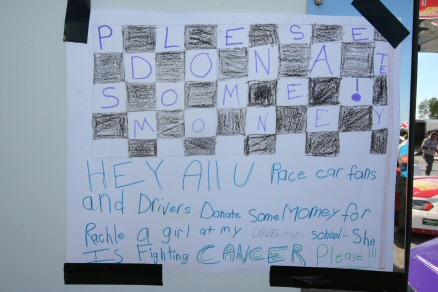 PLESE
DONATE
SOME!
MONEY
HEY All U Race car fans
and Drivers Donate Some Momey for
Rachle a girl at my DAUGHters school-She
Is Fighting CANCER Please!!!